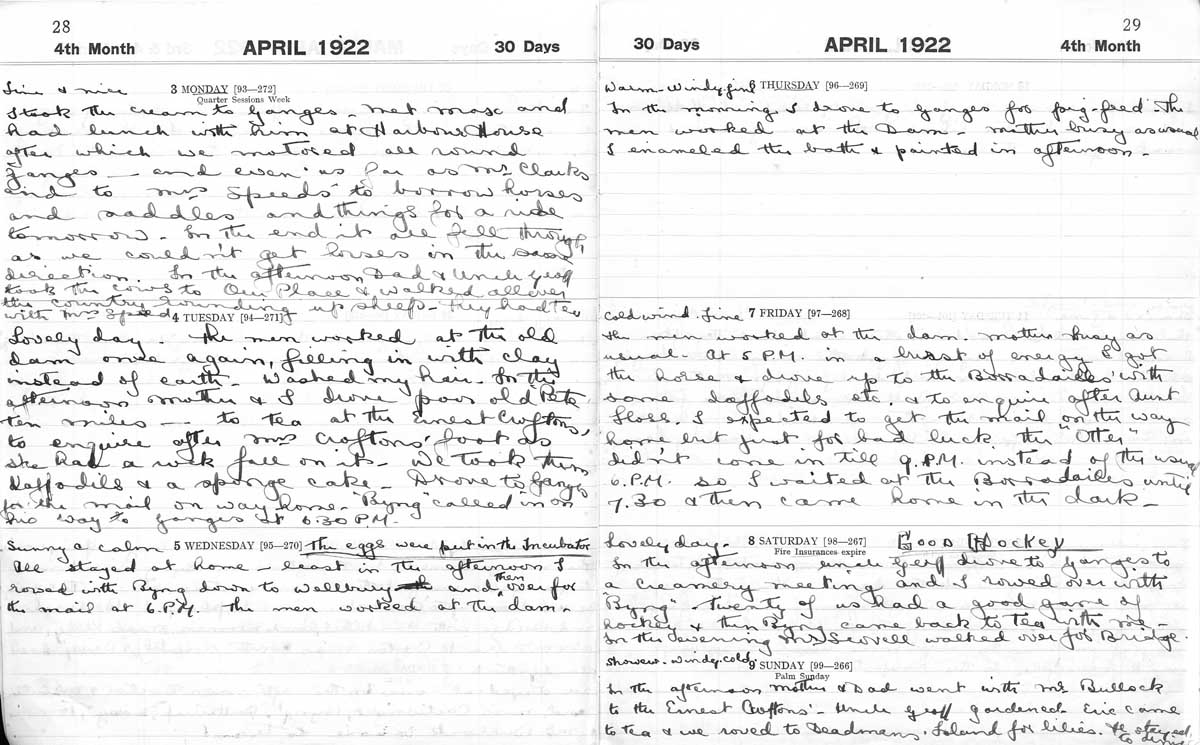 28
4th Month APRIL 1922 30 Days
Fine & nice 3 MONDAY [93—272]
Quarter Sessions Week
I took the cream to Ganges - met Max and
had lunch with him at Harbour House
after which we motored all round
Ganges — and even as far as Mr Clarks
and to Mrs Speeds' to borrow horses
and saddles and things for a ride
tomorrow - In the end it all fell through
as we couldn't get horses in the same
direction. In the afternoon Dad & Uncle Geoff
took the cows to Our Place & walked all over
the country rounding up sheep - They had tea
with Mrs Speed 4 TUESDAY [94—271]
Lovely day. The men worked at the old
dam once again, filling in with clay
instead of earth - Washed my hair - In the
afternoon Mother & I drove poor old Pete
ten miles — to tea at the Ernest Croftons,
to enquire after Mrs Croftons' foot as
she had a rock fall on it - We took them
daffodils & a sponge cake - Drove to Ganges
for the mail on way home - "Byng" called in on
his way to Ganges at 6.30 P.M. -
Sunny & calm 5 WEDNESDAY [95—270] The eggs were put in the Incubator
All stayed at home - least in the afternoon I
rowed with Byng down to Wellbury and then over for
the mail at 6.P.M. The men worked at the dam -
29
30 Days APRIL 1922 4th Month
Warm - windy, fine 6 THURSDAY [96—269]
In the morning I drove to Ganges for pig-feed The
men worked at the Dam - Mother busy as usual
I enameled the bath & painted in afternoon -
Cold wind. Fine 7 FRIDAY [97—268]
The men worked at the dam. Mother busy as
usual - At 5 P.M. in a burst of energy I got
the horse & drove up to the Borradailes' with
some daffodils etc. & to enquire after Aunt
I expected to get the mail on the way
home but just for bad luck the "Otter"
didn't come in till 9.P.M. instead of the usual
6.P.M. so I waited at the Borradailes until
7.30 & then came home in the dark -
Lovely day - 8 SATURDAY [98—267] Good Hockey
Fire Insurances expire
In the afternoon Uncle Geoff drove to Ganges to
a Creamery meeting and I rowed over with
"Byng" - Twenty of us had a good game of
hockey & then Byng came back to tea with me -
In the evening Mr Scovell walked over for Bridge -
Showers - windy. cold 9 SUNDAY [99—266]
Palm Sunday
In the afternoon Mother & Dad went with Mr Bullock
to the Ernest Croftons' - Uncle Geoff gardened. Eric came
to tea & we rowed to Deadmans' Island for lilies. He stayed
to dine